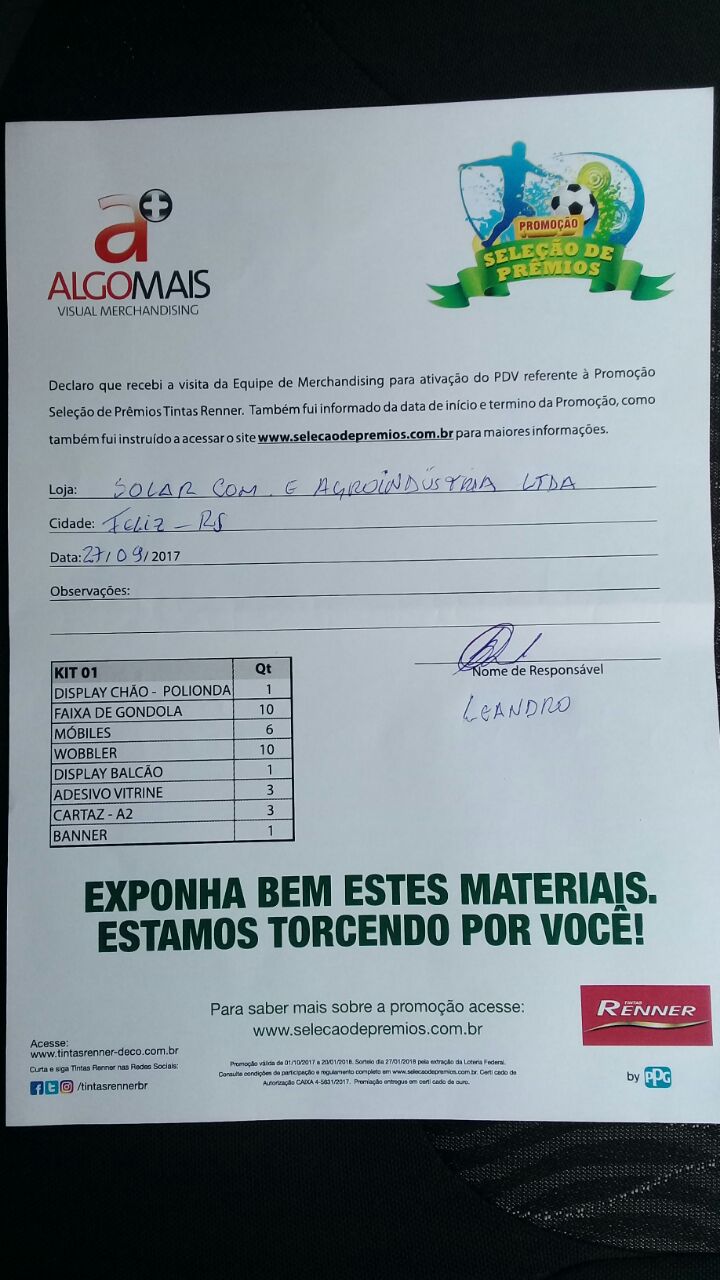 a+
ALGOMAIS
VISUAL MERCHANDISING
PROMOÇÃO
SELEÇÃO DE
PRÊMIOS
Declaro que recebi a visita da Equipe de Merchandising para ativação do PDV referente à Promoção
Seleção de Prêmios Tintas Renner. Também fui informado da data de início e termino da Promoção, como
também fui instruído a acessar o site www.selecaodepremios.com.br para maiores informações.
Loja: SOLAR COM. E AGROINDÚSTRIA LTDA
Cidade: FELIZ - RS
Data: 27/09/2017
Observações:
Nome de Responsável
LEANDRO
KIT 01 Qt
DISPLAY CHÃO - POLIONDA 1
FAIXA DE GONDOLA 10
MÓBILES 6
WOBBLER 10
DISPLAY BALCÃO 1
ADESIVO VITRINE 3
CARTAZ - A2 3
BANNER 1
EXPONHA BEM ESTES MATERIAIS.
ESTAMOS TORCENDO POR VOCÊ!
Para saber mais sobre a promoção acesse:
www.selecaodepremios.com.br
TINTAS
RENNER
by PPG
Acesse:
www.tintasrenner-deco.com.br
Curta e siga Tintas Renner nas Redes Sociais:
/tintasrennerbr
Promoção válida de 01/10/2017 a 20/01/2018. Sorteio dia 27/01/2018 pela extração da Loteria Federal.
Consulte condições de participação e regulamento completo em www.selecaodepremios.com.br. Certi cado de
Autorização CAIXA 4-5631/2017. Premiação entregue em certi cado de ouro.